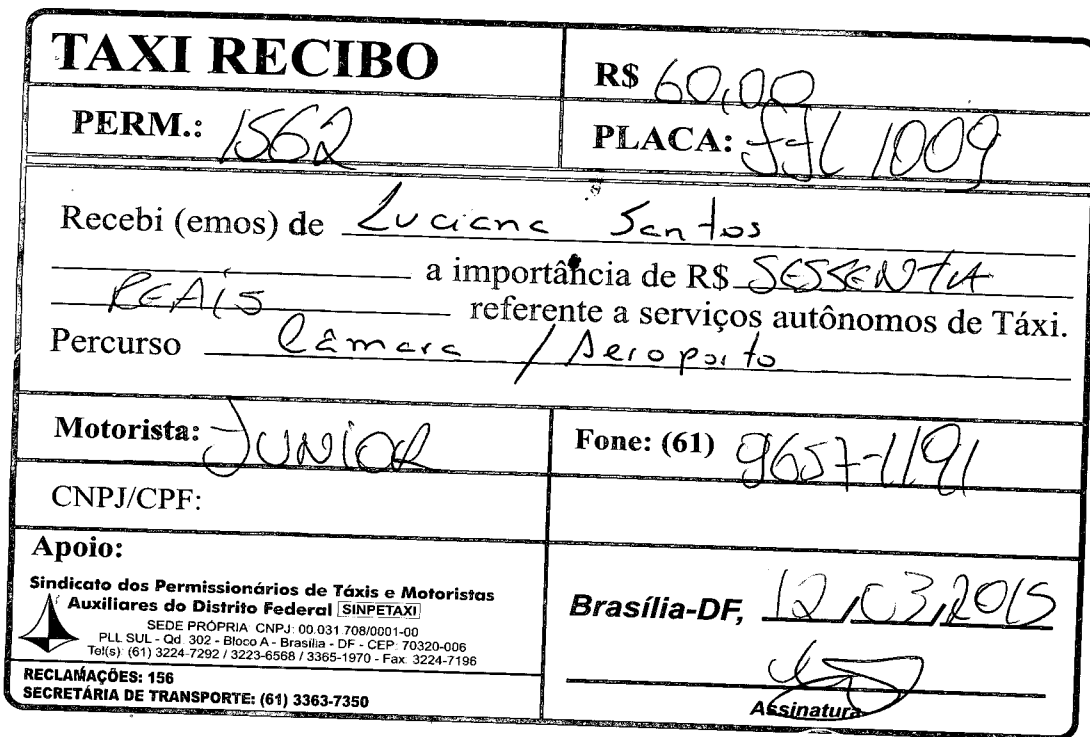 TAXI RECIBO
R$ 60,00
PERM.: 1562
PLACA: JJL 1009
Recebi (emos) de Luciana Santos
a importância de R$ SESSENTA
REAIS referente a serviços autônomos de Táxi.
Percurso Câmara / Aeroporto
Motorista: JUNIOR
Fone: (61) 9657-1191
CNPJ/CPF:
Apoio:
Sindicato dos Permissionários de Táxis e Motoristas
Auxiliares do Distrito Federal SINPETAXI
SEDE PRÓPRIA CNPJ: 00.031 708/0001-00
PLL SUL - Qd. 302 - Bloco A - Brasília - DF - CEP: 70320-006
Tel(s): (61) 3224-7292 / 3223-6568 / 3365-1970 - Fax: 3224-7196
RECLAMAÇÕES: 156
SECRETÁRIA DE TRANSPORTE: (61) 3363-7350
Brasília-DF, 12/03/2015
Assinatura